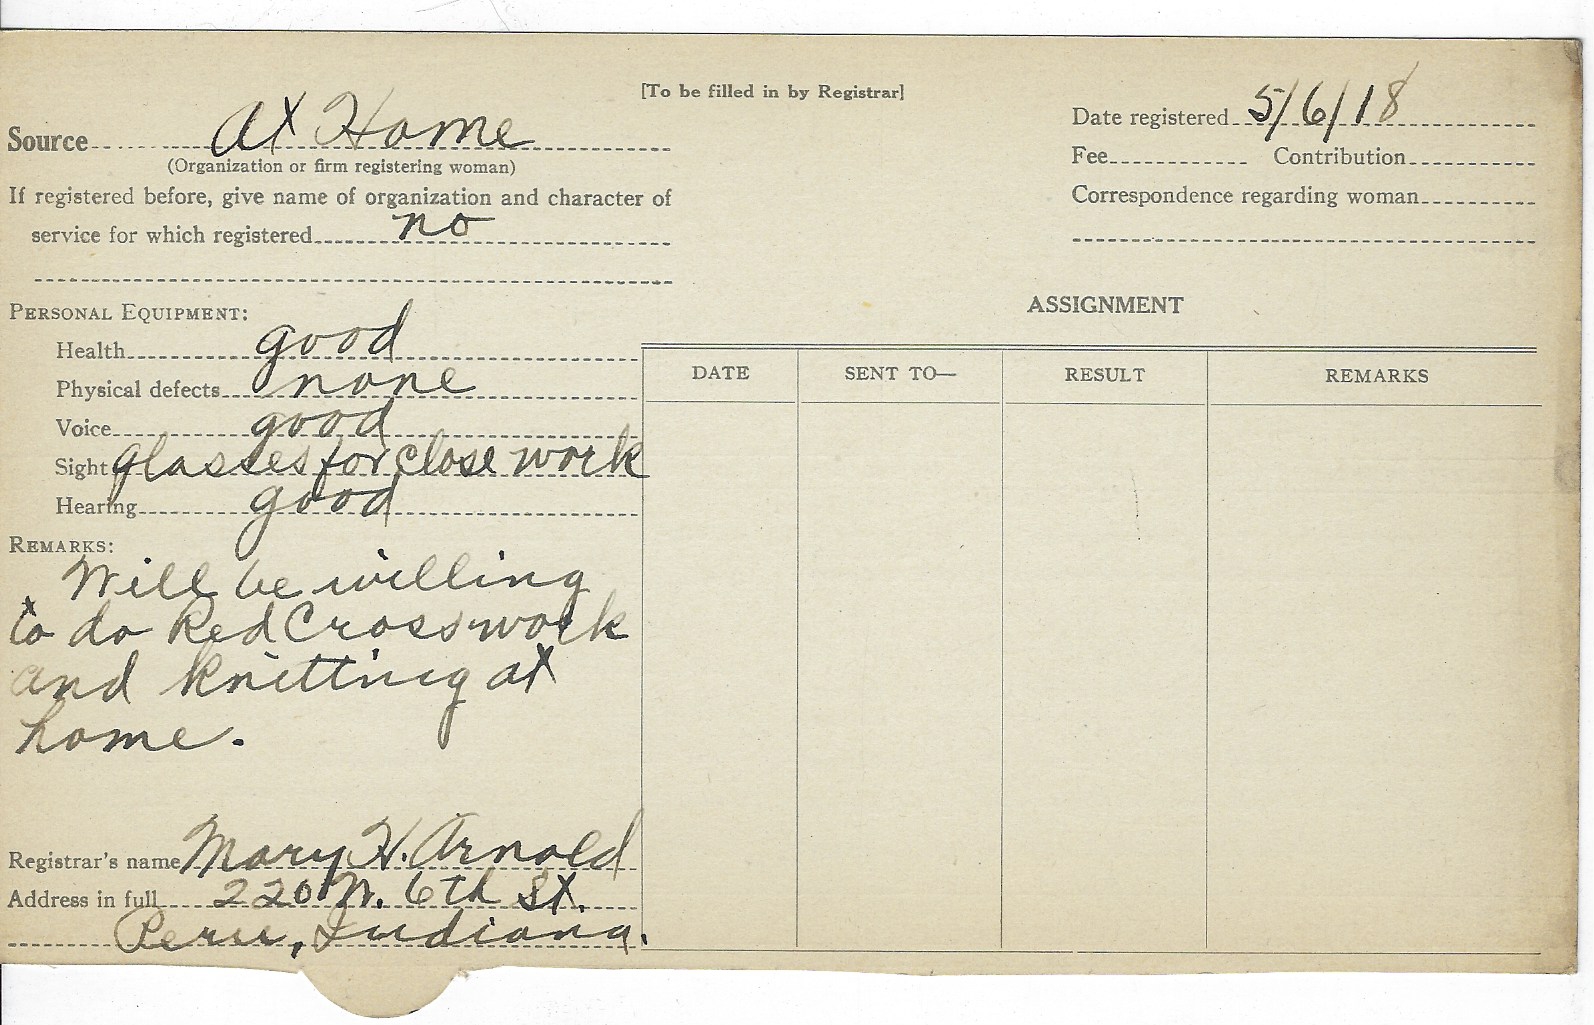 [To be filled in by Registrar]
Source At Home
(Organization or firm registering woman)
If registered before, give name of organization and character of
service for which registered no
Date registered 5/6/18
Fee Contribution
Correspondence regarding woman
PERSONAL EQUIPMENT:
Health good
Physical defects none
Voice good
Sight glasses for close work
Hearing good
REMARKS:
Will be willing
to do Red Cross work
and knitting at
home.
Registrar's name Mary H. Arnold
Address in full 220 W. 6th St.
Peru, Indiana.
ASSIGNMENT
DATE SENT TO— RESULT REMARKS